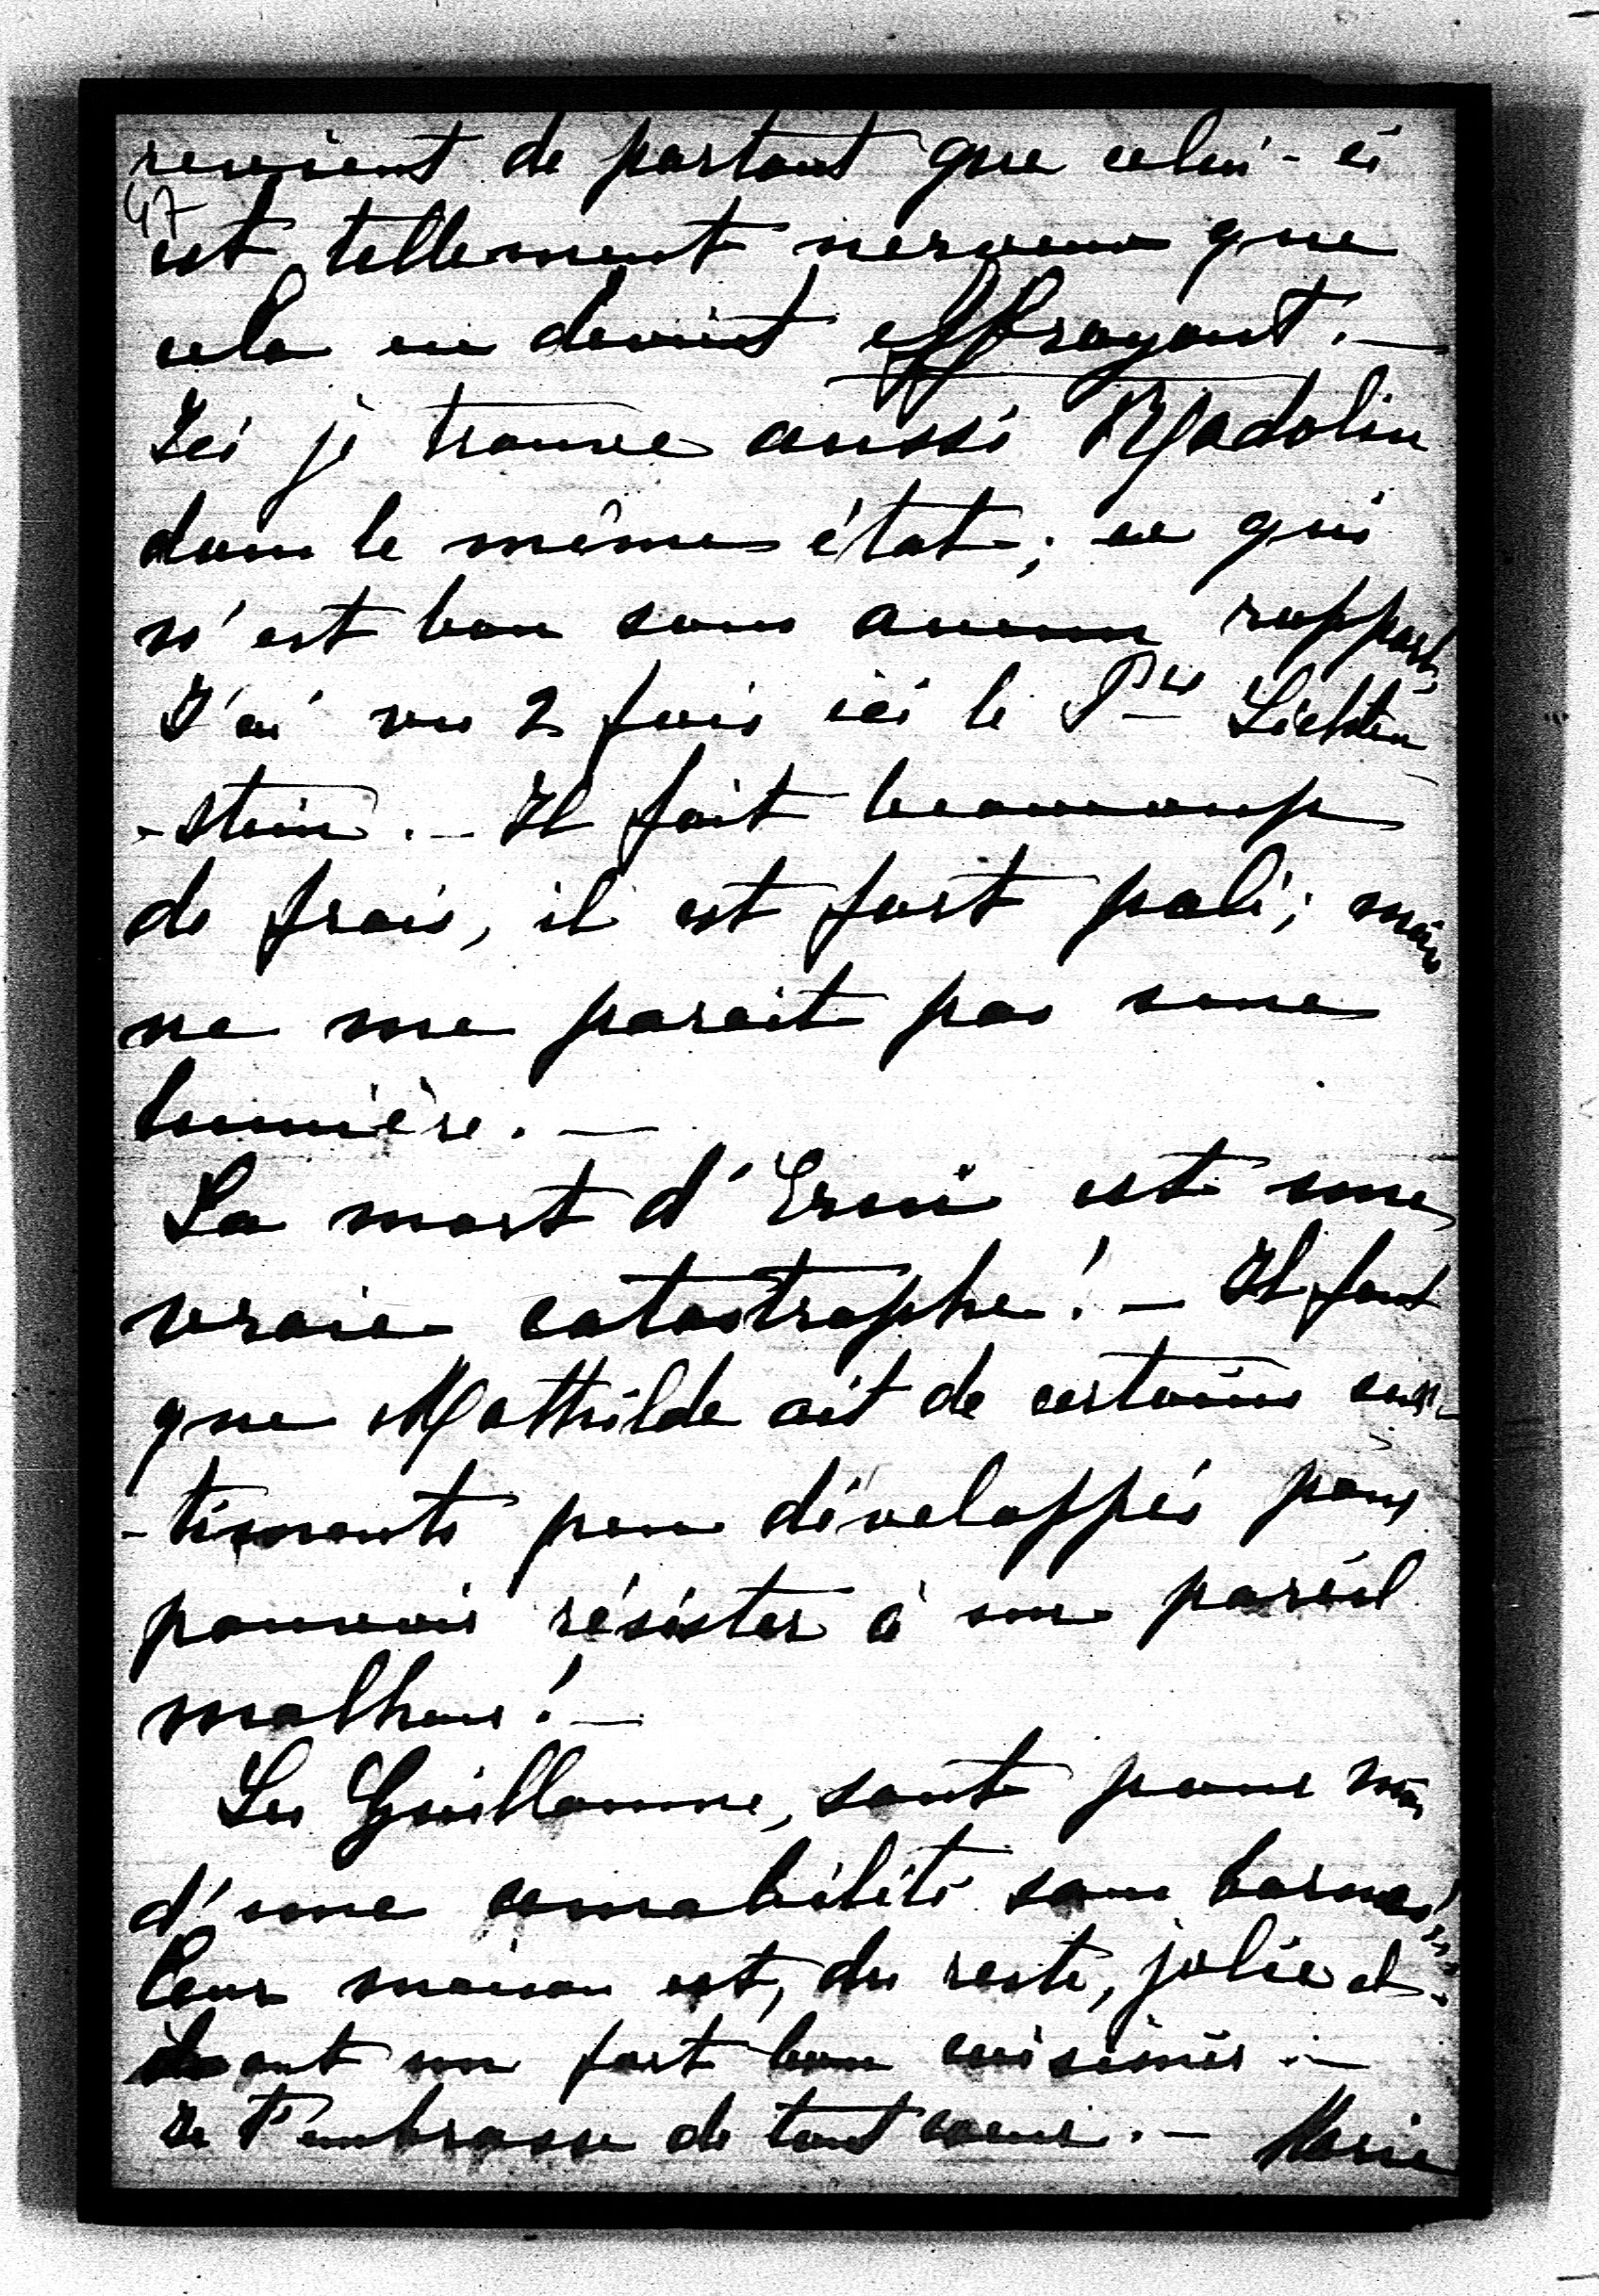 revient de partout que celui-ci
47
est tellement nerveux que
cela en devient effrayant. —
Ici je trouve aussi Madolin
dans le même état; ce qui
n'est bon sous aucun rapport.
J'ai vu 2 fois ici le Pce Lichten
-stein. — Il fait beaucoup
de frais, il est fort poli; mais
ne me parait pas une
lumière. —
La mort d'Erni est une
vraie catastrophe! — Il faut
que Mathilde ait de certains sen-
-timents peu développés pour
pouvoir résister à un pareil
malheur! —
Les Guillaume, sont pour moi
d'une amabilité sans bornes!
Leur maison est, du reste, jolie et
ils ont un fort bon cuisinier. —
Je t'embrasse de tout coeur. — Marie